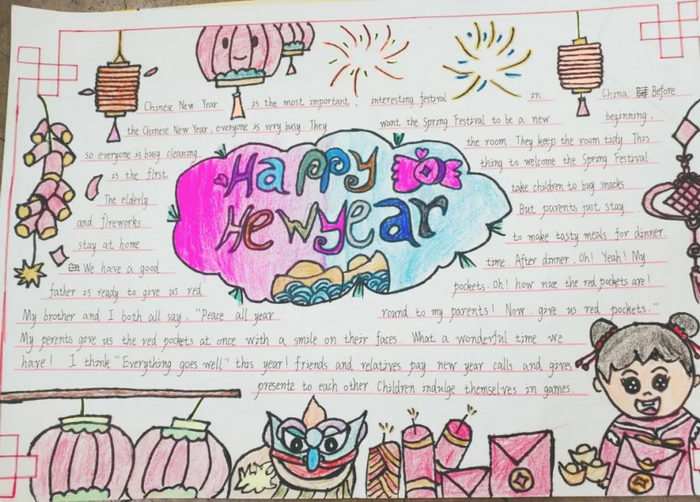 Chinese New Year is the most important, interesting festival in China. Before
the Chinese New Year, everyone is very busy. They want the Spring Festival to be a new beginning,
so everyone is busy cleaning the room. They keep the room tidy. This
is the first thing to welcome the Spring Festival.
The elderly take children to buy snacks
and fireworks But parents just stay
stay at home to make tasty meals for dinner
We have a good time After dinner. Oh! Yeah! My
father is ready to give us red pockets. Oh! how nice the red pockets are!
Happy
Hewyear
My brother and I both all say. "Peace all year round to my parents! Now give us red pockets."
My perents give us the red pockets at once with a smile on their faces. What a wonderful time we
have! I think "Everything goes well" this year! friends and relatives pay new year calls and gives
presente to each other Children indulge themselves in games